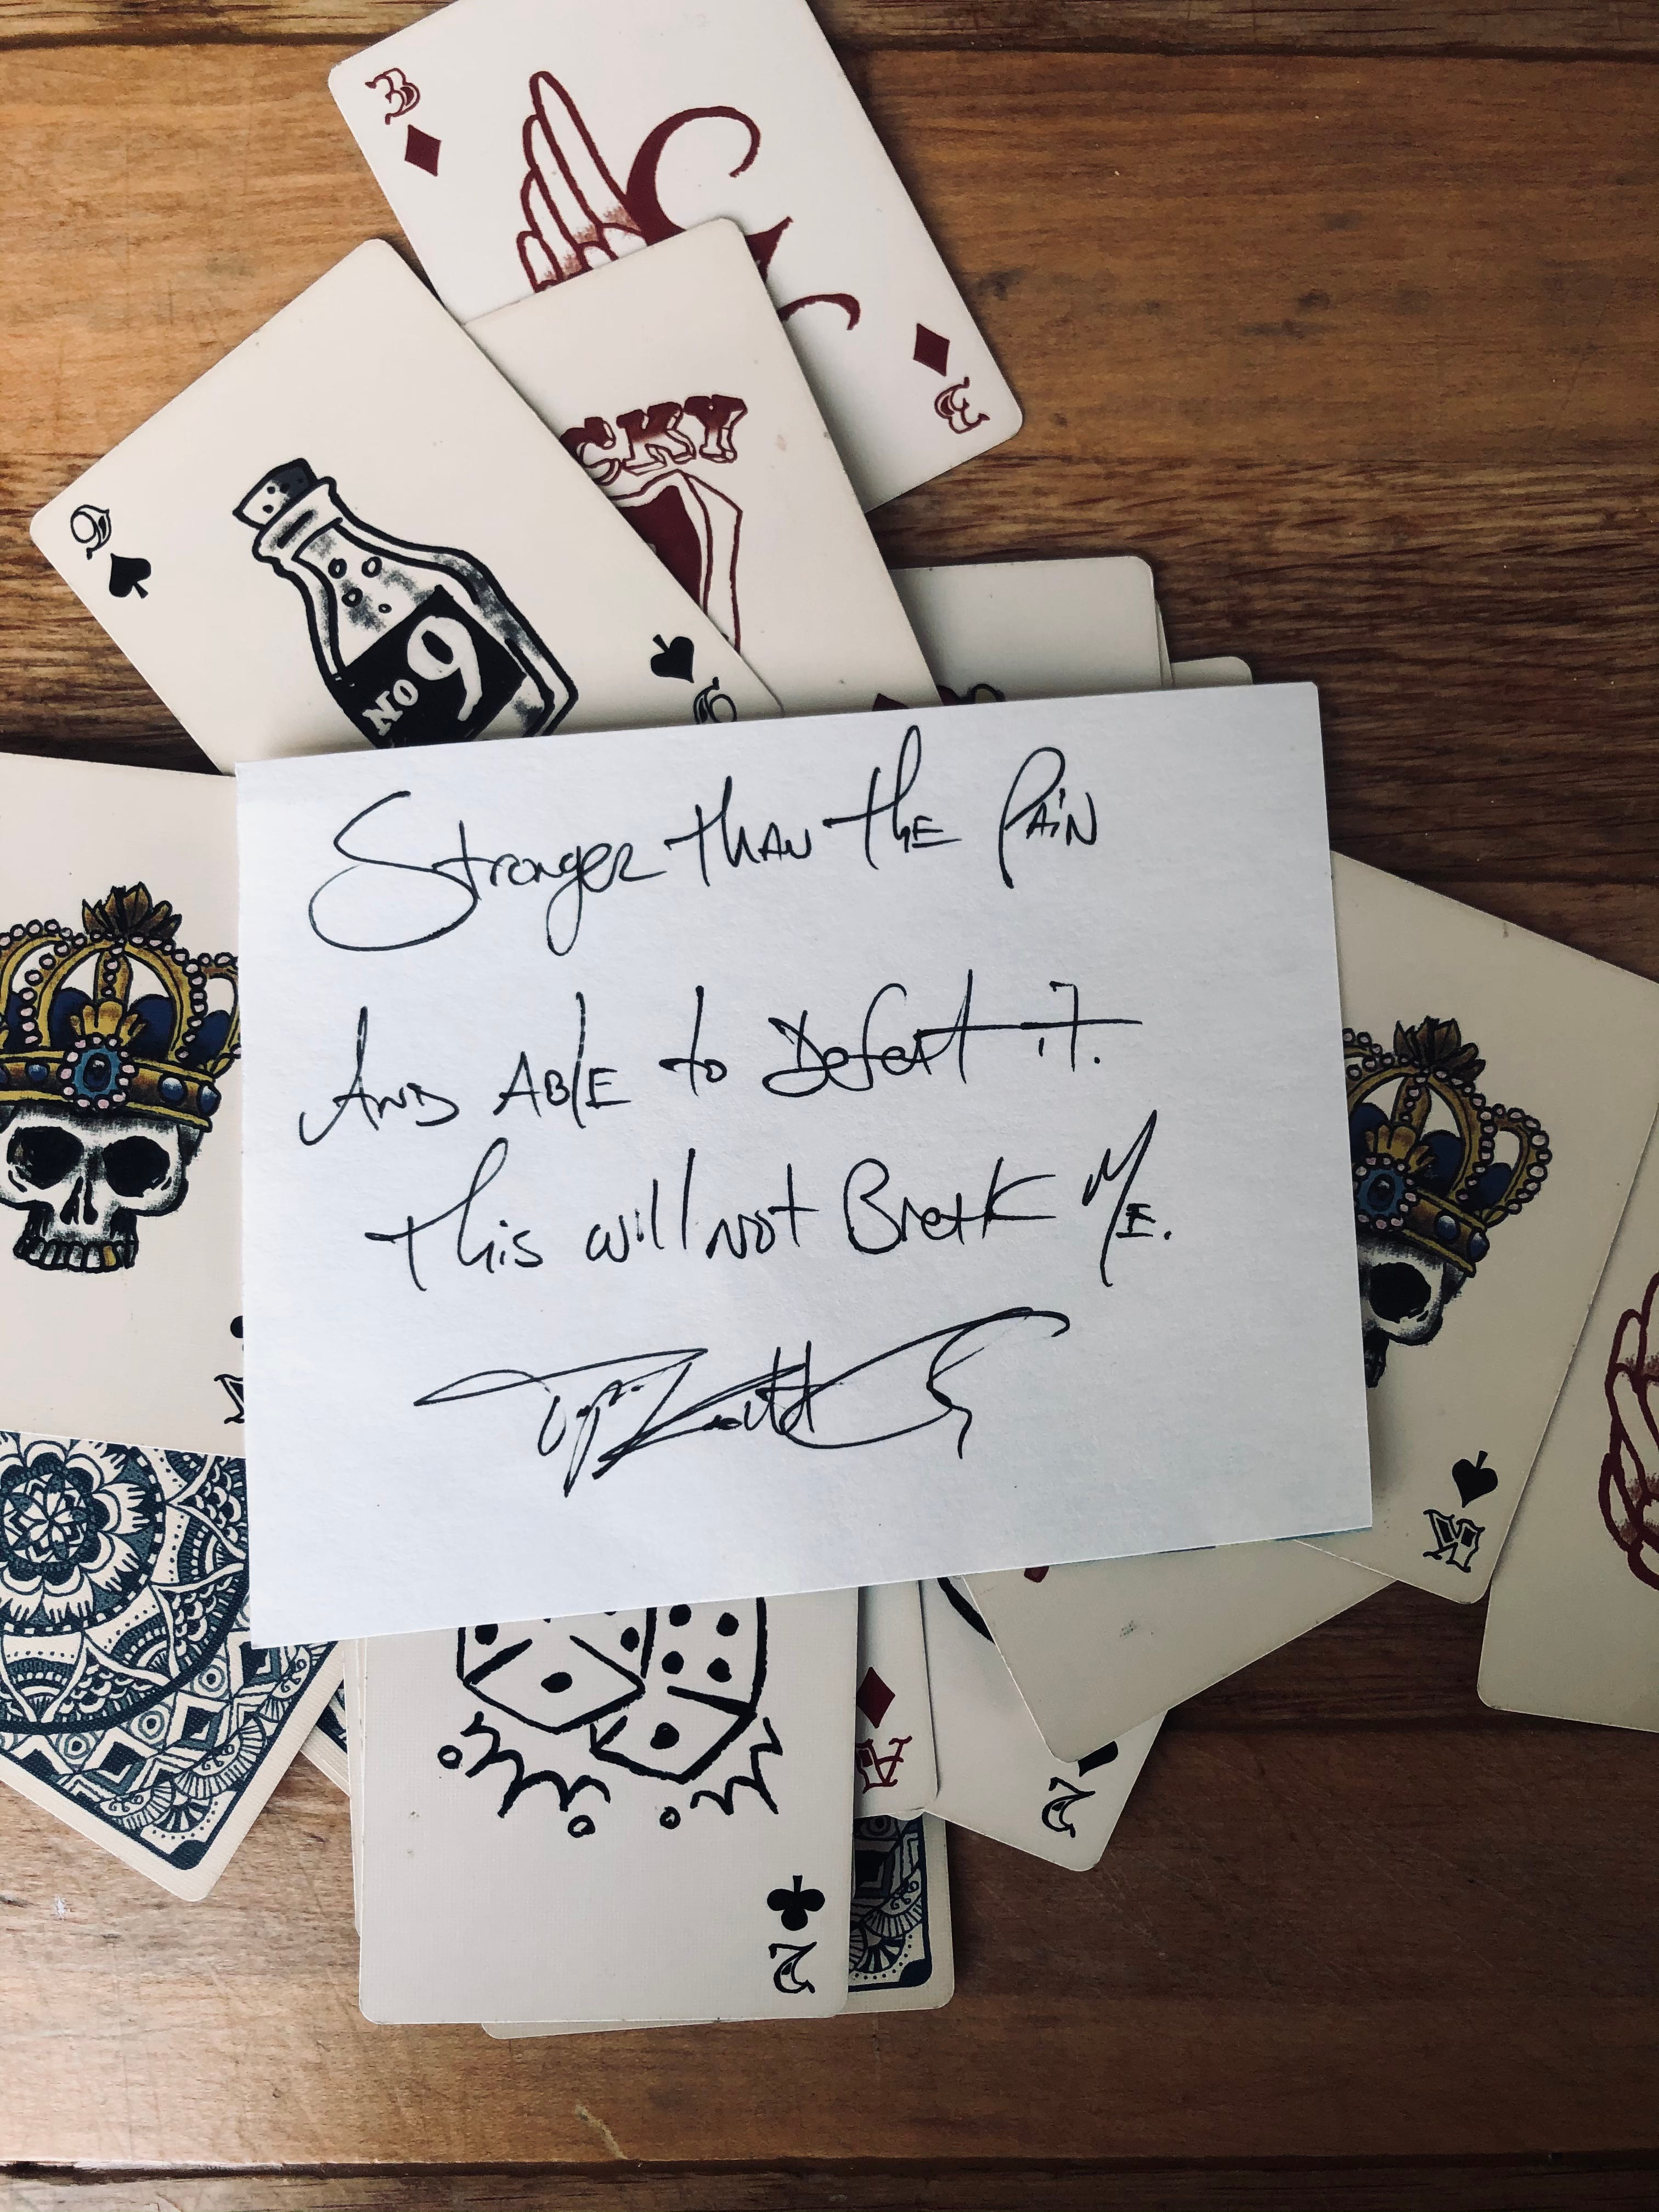 3
3
CKY
9
No 9
9
Stronger than the Pain
And able to Defeat it.
This will not Break Me.
K
A
2
2